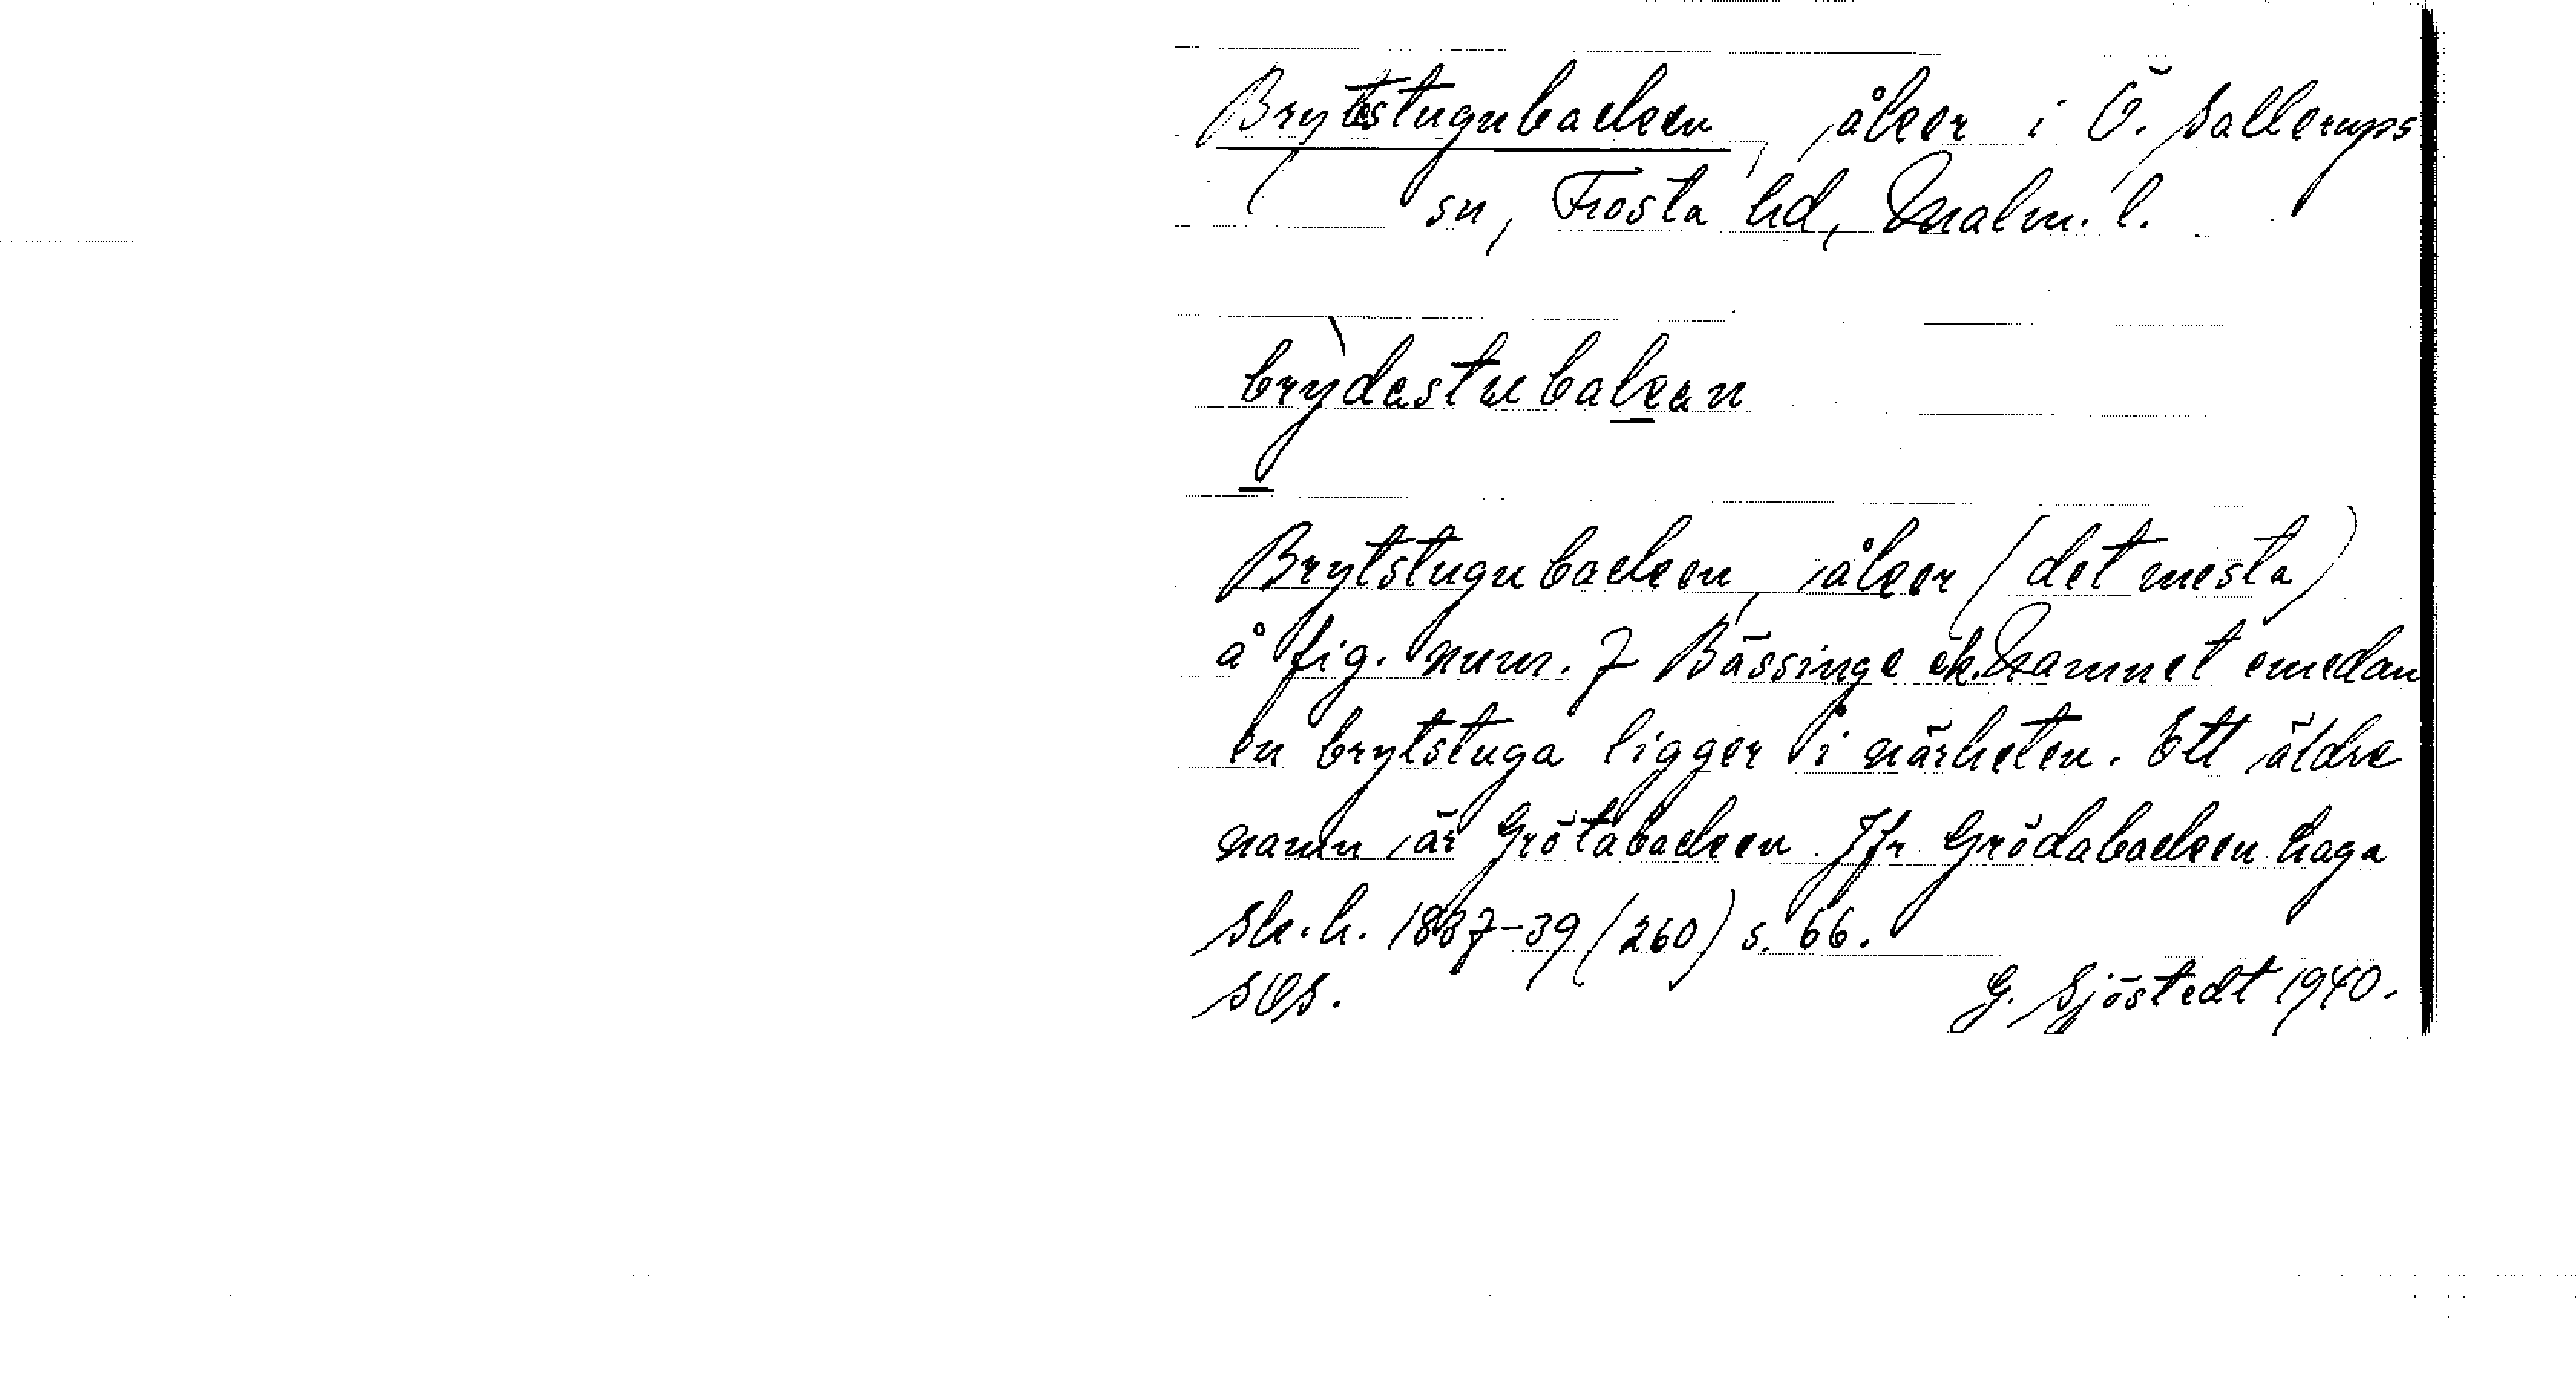 Brytstugubacken, åker i Ö. Sallerups
sn, Frosta hd, Malm. l.
brỳdastubakan
Brytstugubacken, åker (det mesta)
å fig. num. 7 Bässinge ek. Namnet emedan
en brytstuga ligger i närheten. Ett äldre
namn är Grötabacken. Jfr Grödabacken haga
sk.h. 1837-39 (260) s. 66.
SOS.
G. Sjöstedt 1940.